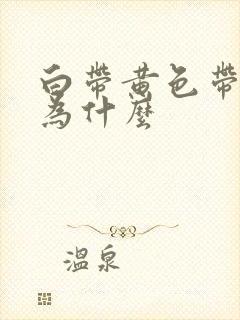 白帶黃色帶
為什麼
溫泉